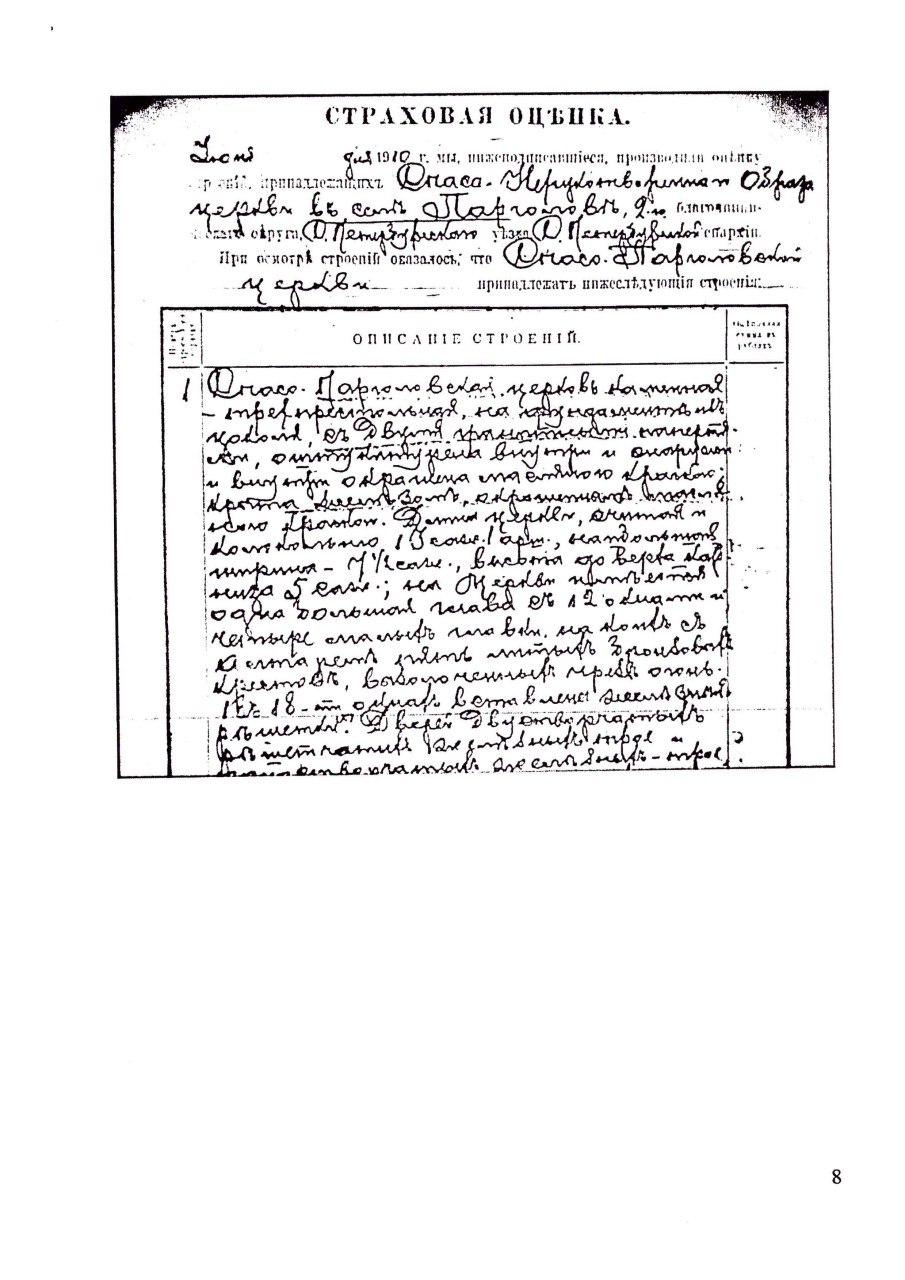 СТРАХОВАЯ ОЦѢНКА.
Іюня дня 1910 г. мы, нижеподписавшіеся, производили оцѣнку
строеній, принадлежащихъ Спасо-Нерукотвореннаго Образа
церкви въ селѣ Парголовѣ, 2-го благочинни-
ческаго округа, С. Петербургскаго уѣзда С. Петербургской епархіи.
При осмотрѣ строеній оказалось, что Спасо-Парголовской
церкви принадлежатъ нижеслѣдующія строенія:
ОПИСАНІЕ СТРОЕНІЙ.
1 Спасо-Парголовская церковь каменная
трехпрестольная, на фундаментѣ изъ
цоколя, съ двумя гранитными паперт-
ми, оштукатурена внутри и снаружи
и внутри окрашена масляною краскою;
крыта желѣзомъ, окрашеннымъ
краской. Длина церкви, считая и
колокольню 15 саж. 1 арш., наибольшая
ширина - 7 1/2 саж., высота до верха кар-
низа 5 саж.; на церкви имѣется
одна большая глава съ 12 окнами и
четыре малыхъ главы, на коихъ съ
алтаремъ пять литыхъ бронзовыхъ
крестовъ, вызолоченныхъ чрезъ огонь.
Въ 18-ти окнахъ вставлены желѣзныя
рѣшетки. Дверей двустворчатыхъ
рѣшетчатыхъ желѣзныхъ трое и
желѣзныхъ - трое,
8